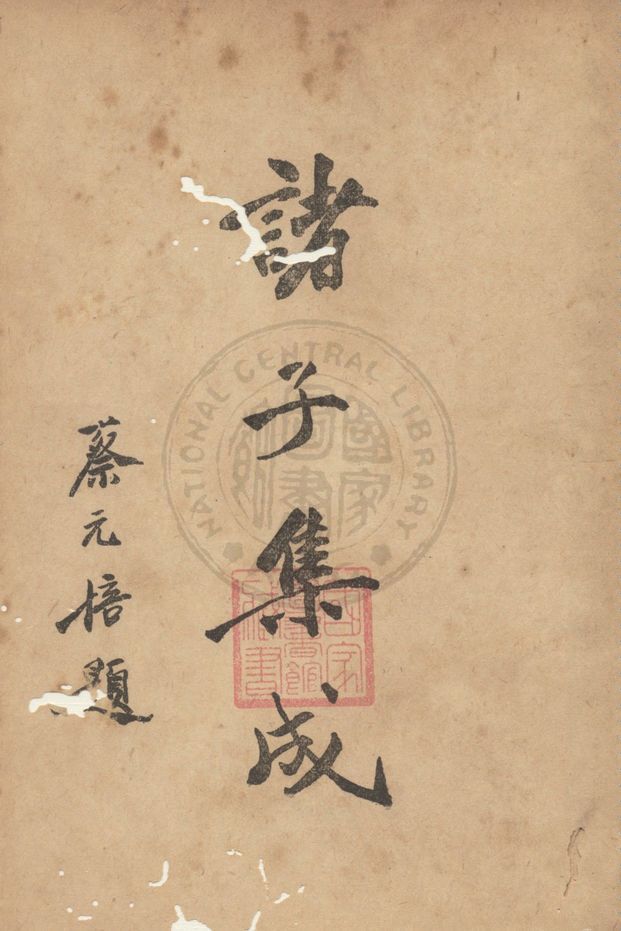 諸子集成
蔡元培題
NATIONAL CENTRAL LIBRARY
國家圖書館
國家圖書館藏書